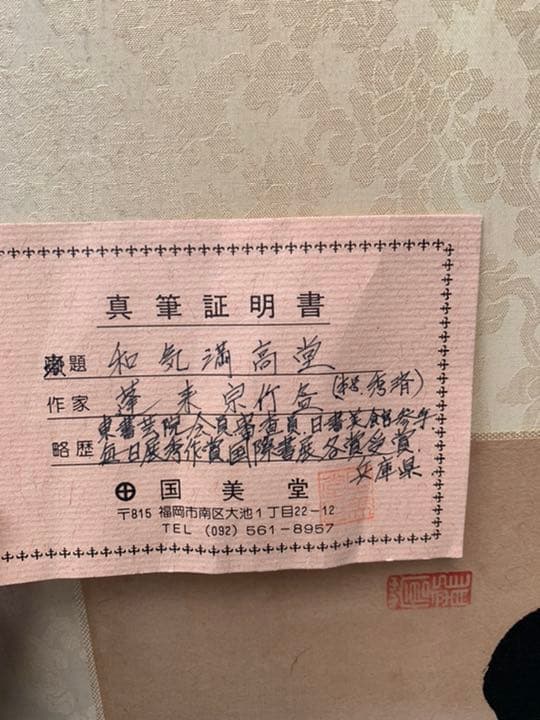 真筆証明書
題 和気満高堂
作家 蓬来宗竹
略歴 東書芸院会員審査員日書美館参与
毎日展秀作賞国際書展各賞受賞.
兵庫県
国美堂
〒815 福岡市南区大池1丁目22−12
TEL (092) 561-8957